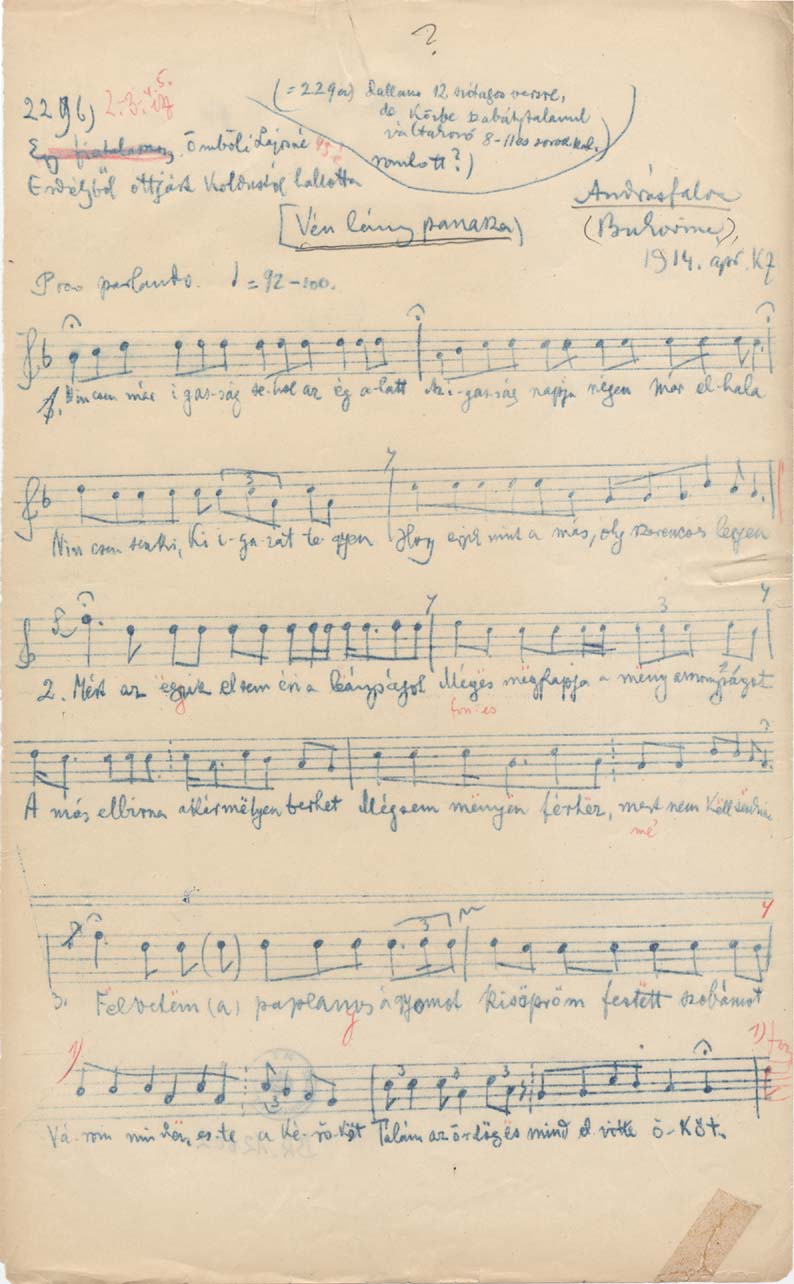 ?
229b) 2.3.4.5.
(=229a) dallama 12 szótagos versre,
de közbe szabálytalanul
váltakozó 8-11es sorokkal.
romlott?)
Egy fiatalasszony, Ömböli Lajosné
Erdélyből ottjárt koldustól hallotta
Andrásfalva
(Bukovina),
[Vén lány panasza]
1914. ápr. KZ
Poco parlando. = 92-100.
1. Nincsen már i gas-ság se-hol az ég a-latt Az i-gas-ság napja régen már el-hala
Nin csen senki, ki i-ga-zat te-gyen Hogy egyik mint a más, oly szerencsés legyen
2. Mért az ëgyik elsem éri a leányságot Mégës mëgkapja a mënyasszonyságot
A más elbirna akármëlyen terhet Mégsem mënyën férhëz, mert nem këll
mé
3. Felvetëm (a) paplanyos ágyomot kisöpröm festëtt szobámot
Vá-rom min dën, es-te a ké-rő-köt Talám az ördög ës mind el vitte ő-köt.